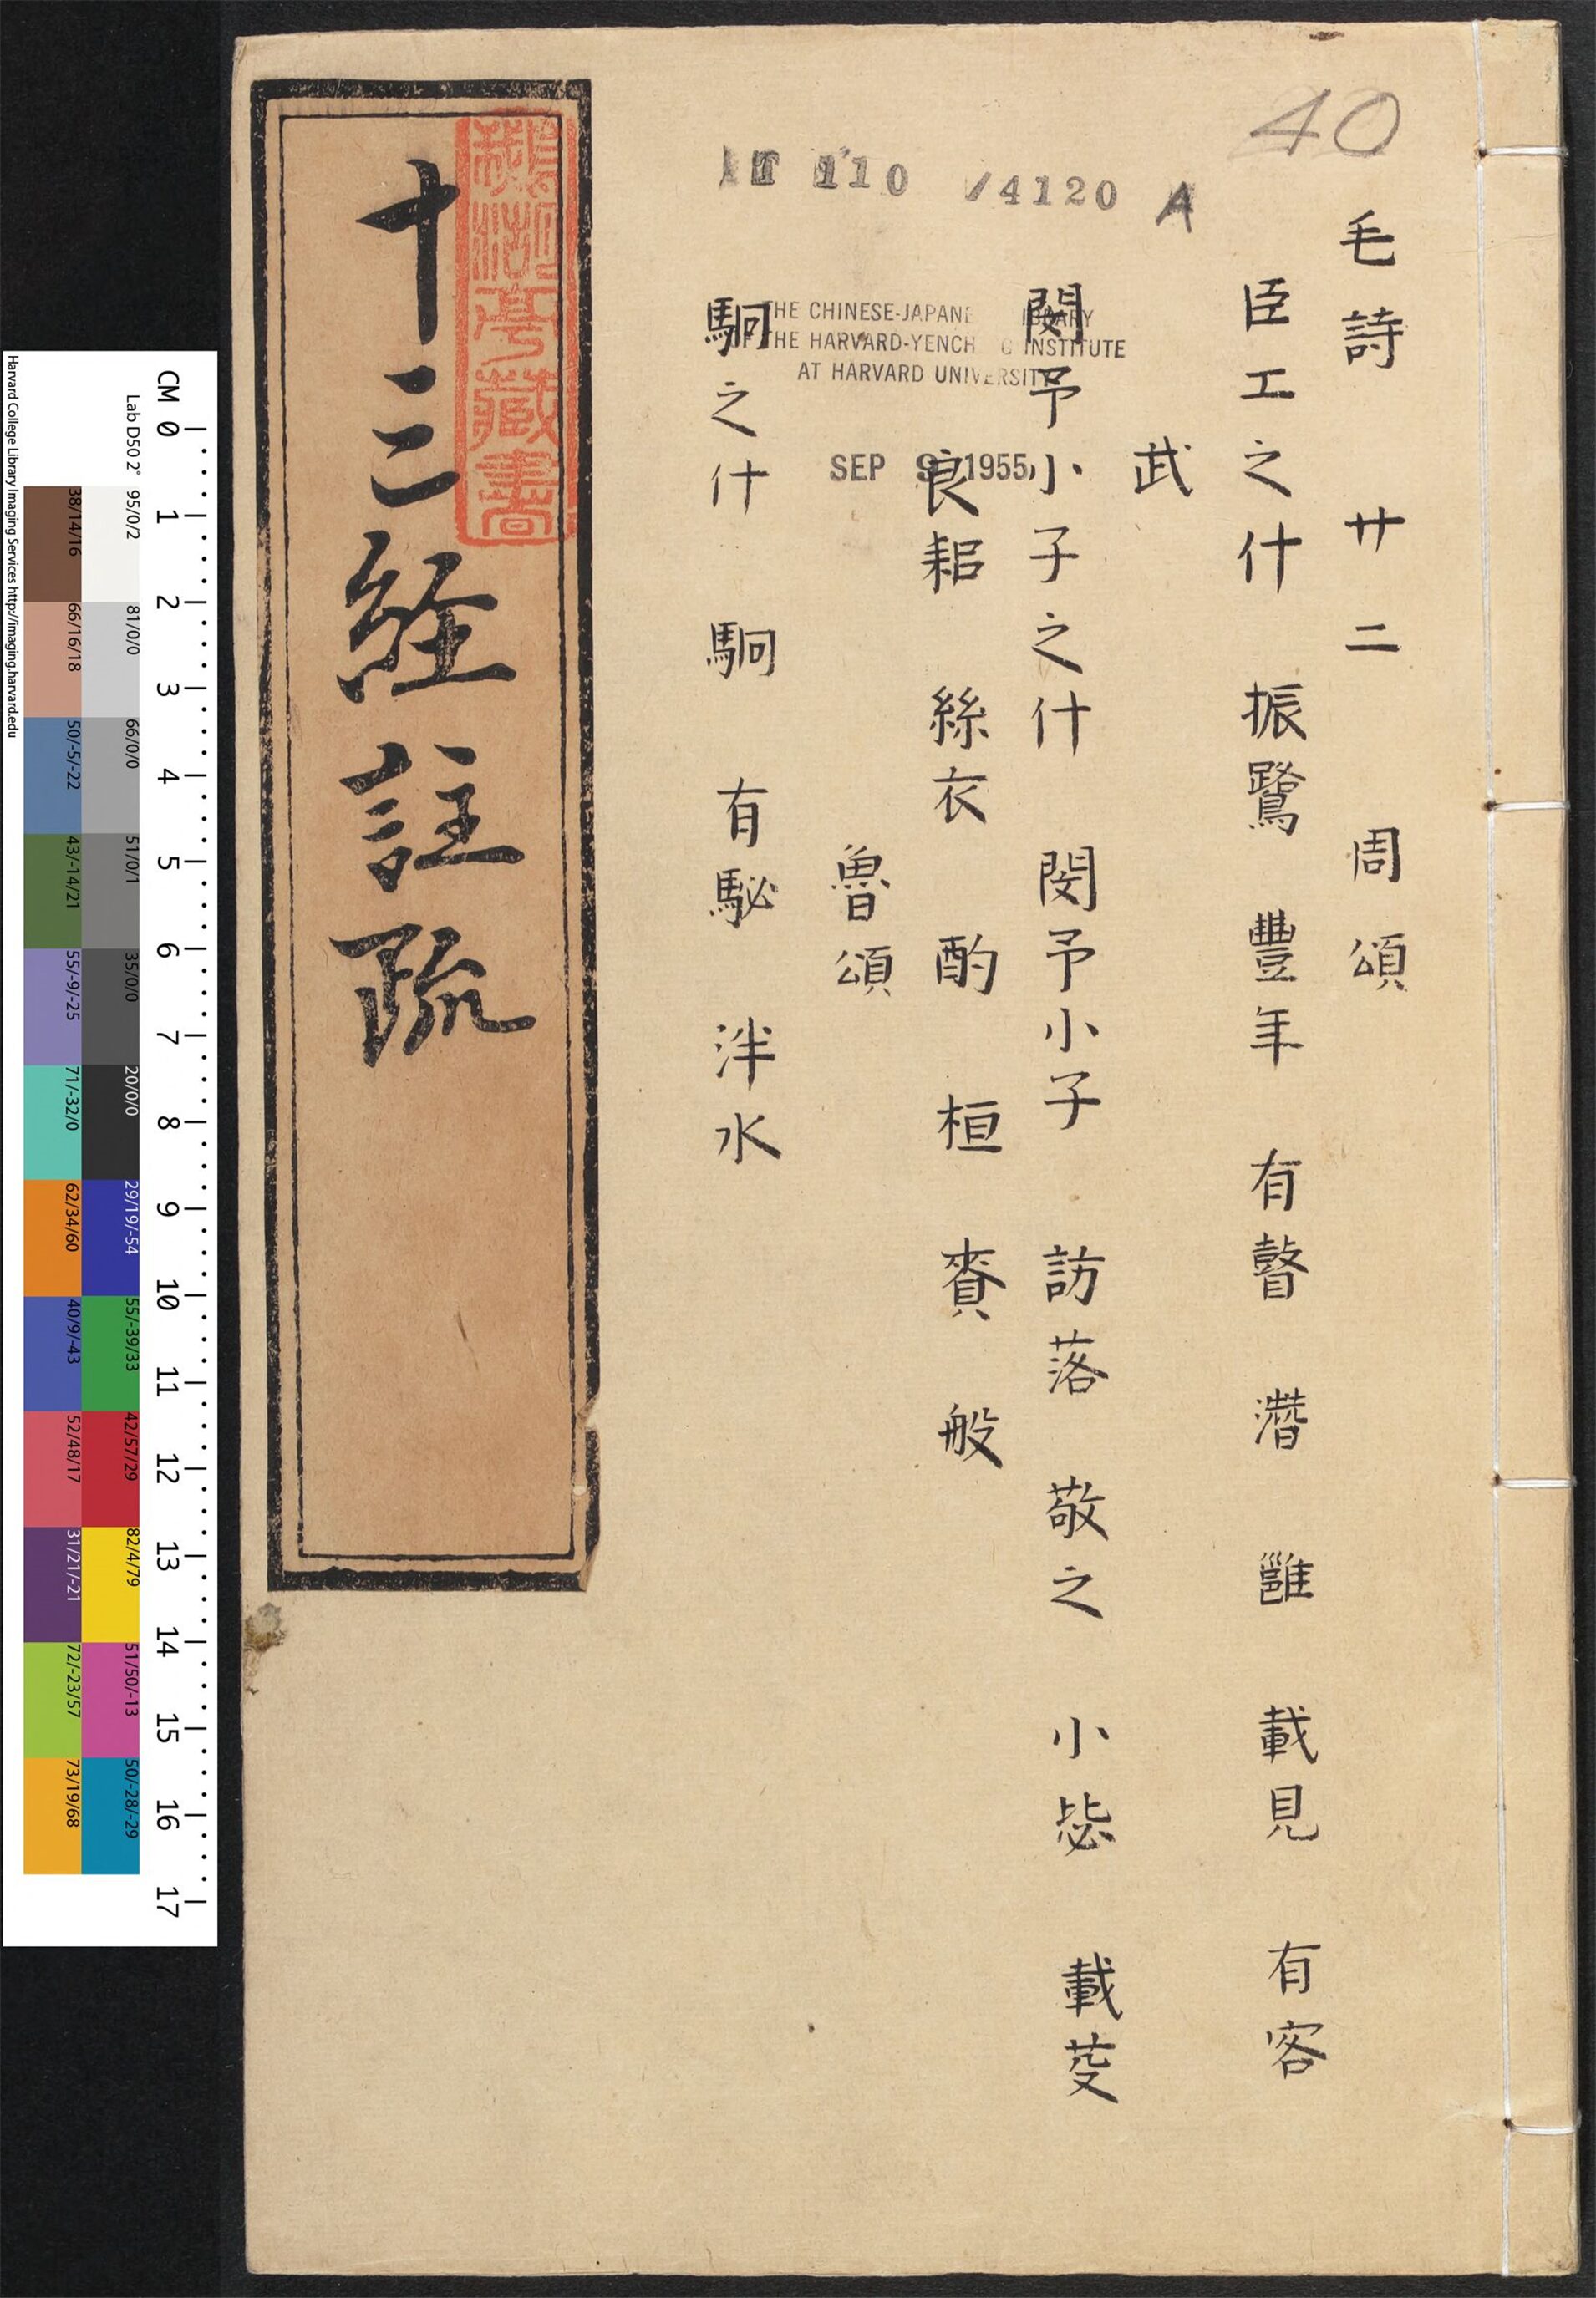 40
T 110 /4120 A
THE CHINESE-JAPANESE LIBRARY
OF THE HARVARD-YENCHING INSTITUTE
AT HARVARD UNIVERSITY
SEP 1955
毛詩 廿二 周頌
臣工之什 振鷺 豐年 有瞽 潛 雝 載見 有客
武
閔予小子之什 閔予小子 訪落 敬之 小毖 載芟
良耜 絲衣 酌 桓 賚 般
魯頌
駉之什 駉 有駜 泮水
十三經註疏
亭藏書
CM 0 1 2 3 4 5 6 7 8 9 10 11 12 13 14 15 16 17
Lab D50 2° 95/0/2 81/0/0 66/0/0 51/0/1 35/0/0 20/0/0 29/19/-54 55/-39/33 42/57/29 82/4/79 51/50/-13 50/-28/-29
38/14/16 66/16/18 50/-5/-22 43/-14/21 55/-9/-25 71/-32/0 62/34/60 40/9/-43 52/48/17 31/21/-21 72/-23/57 73/19/68
Harvard College Library Imaging Services http://imaging.harvard.edu